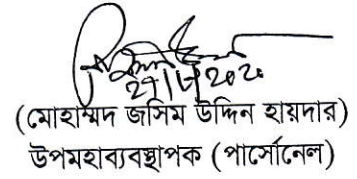 (মোহাম্মদ জসিম উদ্দিন হায়দার)
উপমহাব্যবস্থাপক (পার্সোনেল)